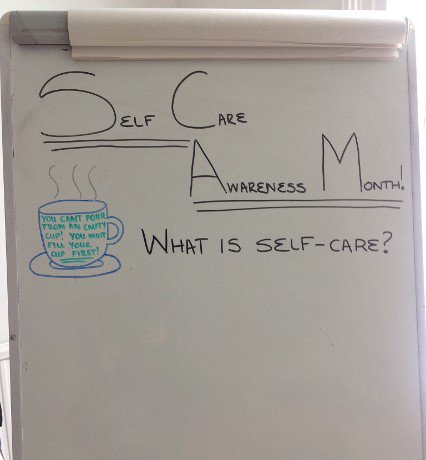 SELF CARE
AWARENESS MONTH!
YOU CAN'T POUR
FROM AN EMPTY
CUP! YOU MUST
FILL YOUR
CUP FIRST!
WHAT IS SELF-CARE?